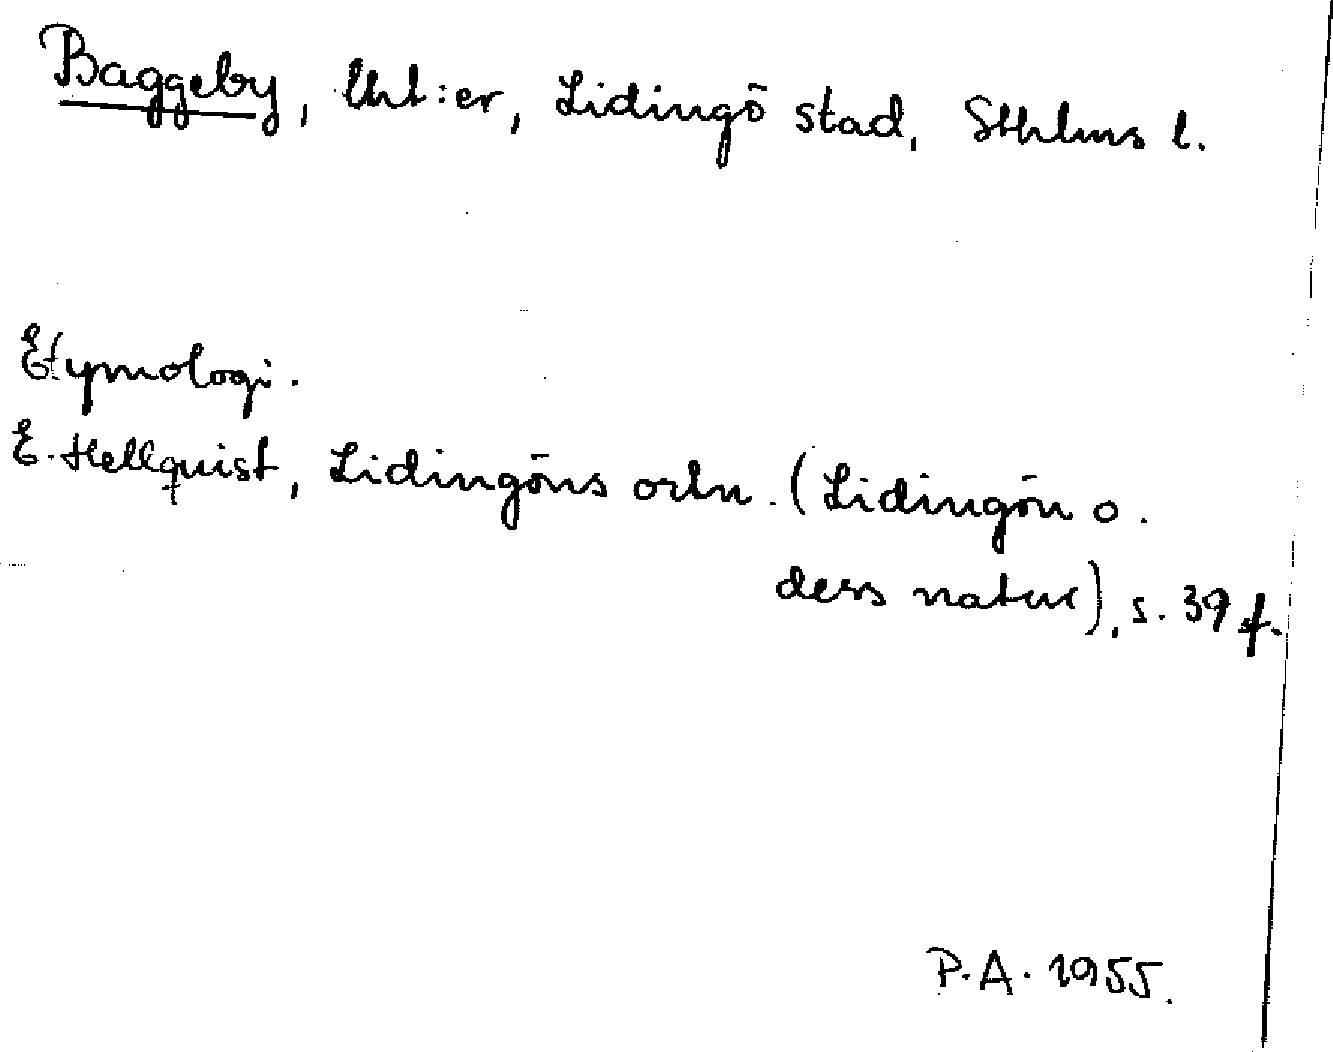 Baggeby, lht:er, Lidingö stad, Sthlms l.
Etymologi.
E. Hellquist, Lidingöns ortn. (Lidingön o.
dess natur), s. 39 f.
P.A. 1955.